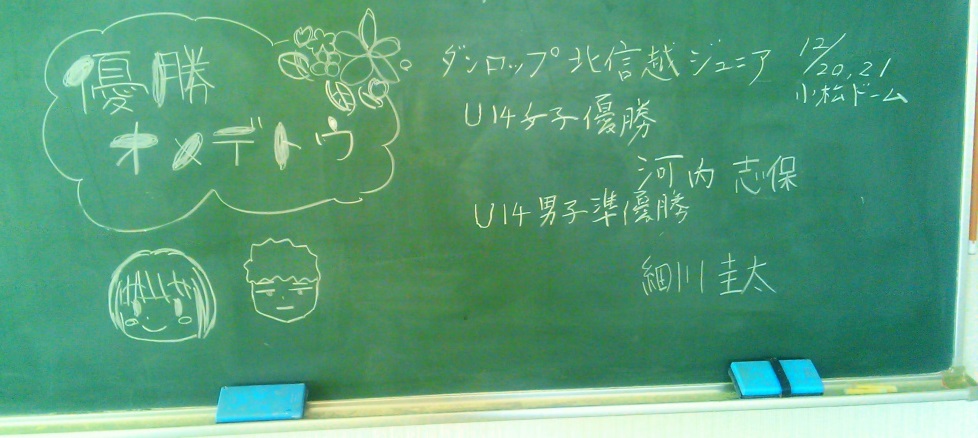 優勝
オメデトウ
ダンロップ北信越ジュニア
12/20,21
小松ドーム
U14女子優勝
河内 志保
U14男子準優勝
細川 圭太